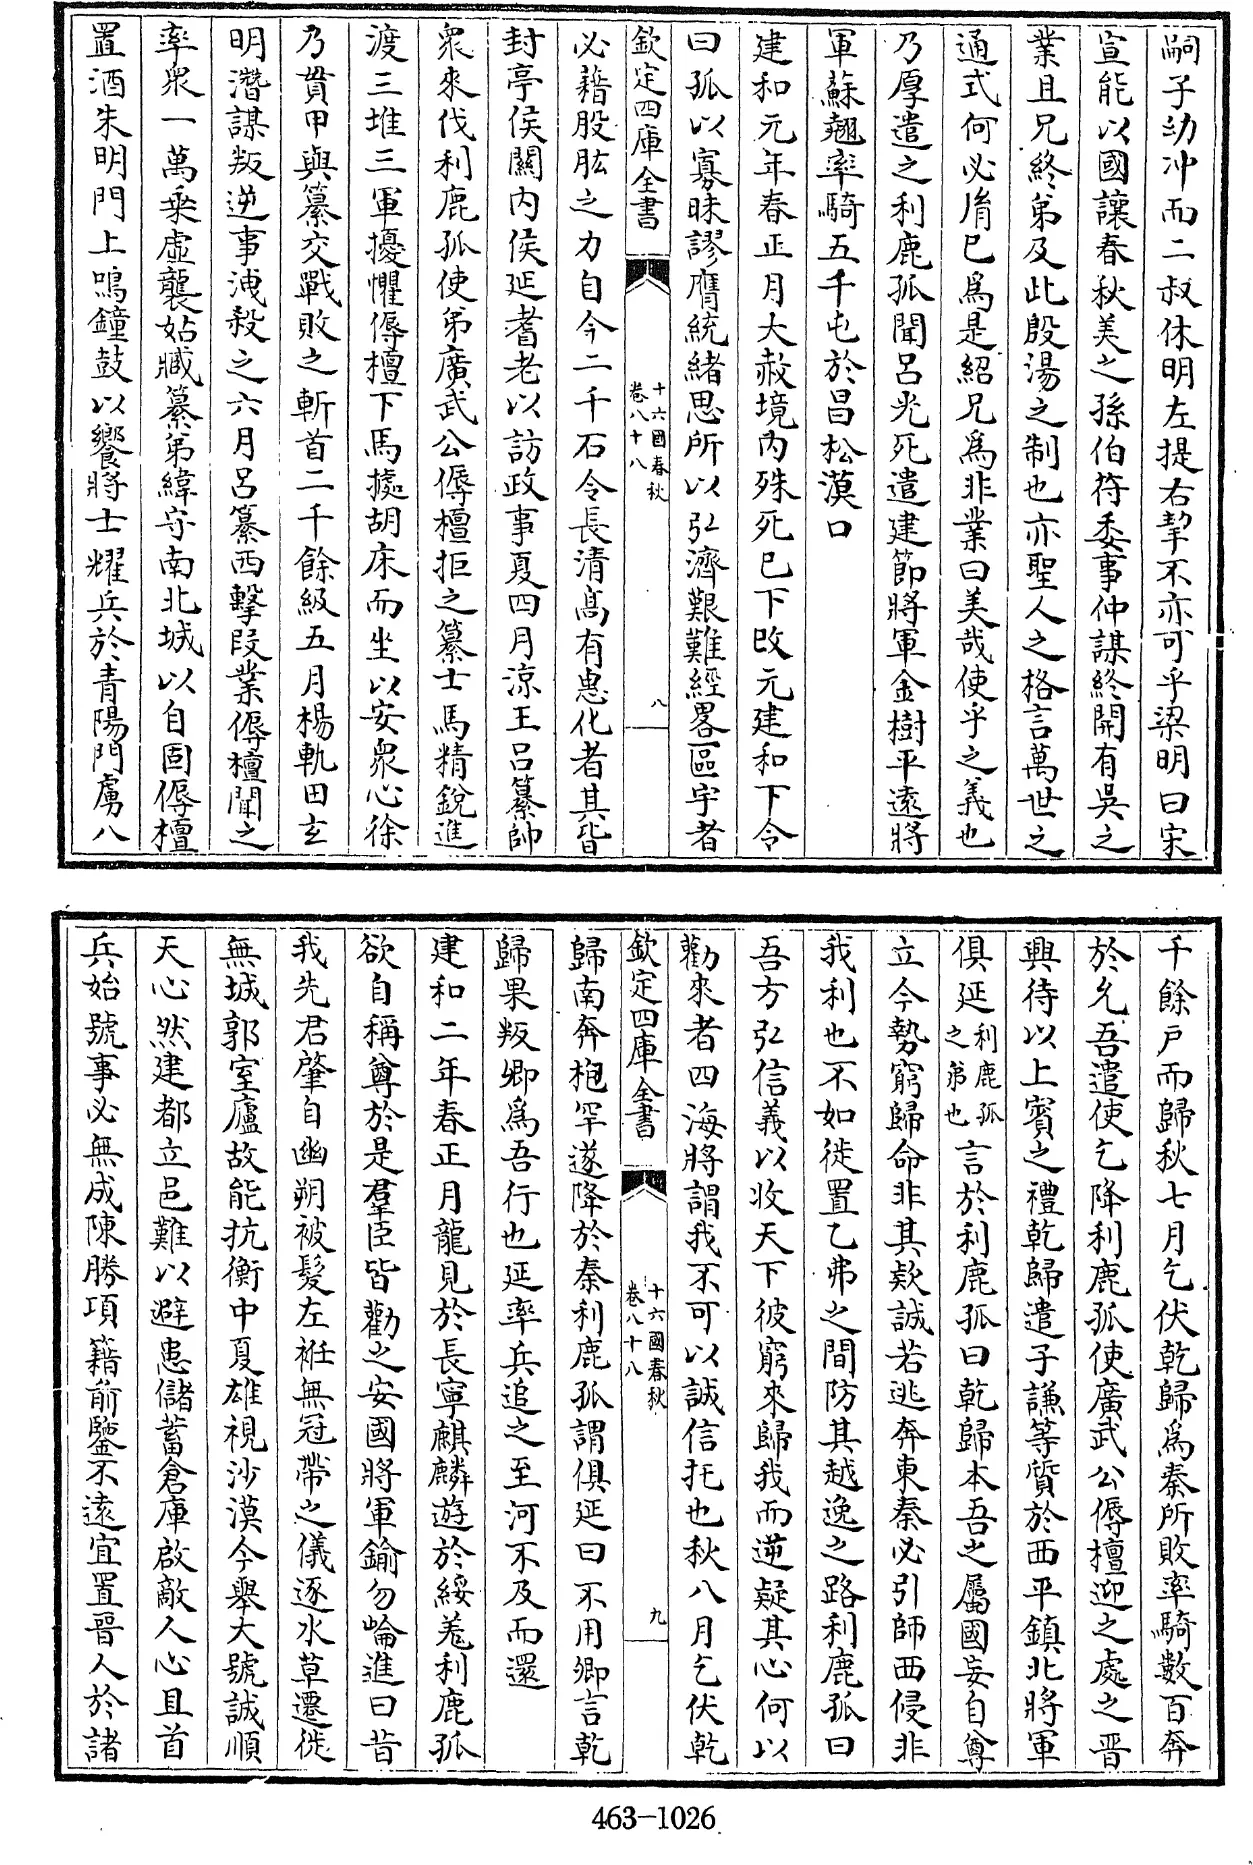 嗣子幼冲而二叔休明左提右挈不亦可乎梁明曰宋
宣能以國讓春秋美之孫伯符委事仲謀終開有吳之
業且兄終弟及此殷湯之制也亦聖人之格言萬世之
通式何必胤已為是紹兄為非業曰美哉使乎之義也
乃厚遣之利鹿孤聞呂光死遣建節將軍金樹平遠將
軍蘇翹率騎五千屯於昌松漠口
建和元年春正月大赦境內殊死已下改元建和下令
曰孤以寡昧謬膺統緒思所以弘濟艱難經畧區宇者
欽定四庫全書
十六國春秋
卷八十八
八
必藉股肱之力自今二千石令長清高有惠化者其皆
封亭侯關內侯延耆老以訪政事夏四月涼王呂纂帥
衆來伐利鹿孤使弟廣武公傉檀拒之纂士馬精銳進
渡三堆三軍擾懼傉檀下馬據胡床而坐以安衆心徐
乃貫甲與纂交戰敗之斬首二千餘級五月楊軌田玄
明潛謀叛逆事洩殺之六月呂纂西擊段業傉檀聞之
率衆一萬乘虛襲姑臧纂弟緯守南北城以自固傉檀
置酒朱明門上鳴鐘鼓以饗將士耀兵於青陽門虜八
千餘戶而歸秋七月乞伏乾歸為秦所敗率騎數百奔
於允吾遣使乞降利鹿孤使廣武公傉檀迎之處之晉
興待以上賓之禮乾歸遣子謙等質於西平鎮北將軍
俱延利鹿孤之弟也言於利鹿孤曰乾歸本吾之屬國妄自尊
立今勢窮歸命非其欵誠若逃奔東秦必引師西侵非
我利也不如徙置乙弗之間防其越逸之路利鹿孤曰
吾方弘信義以收天下彼窮來歸我而逆疑其心何以
勸來者四海將謂我不可以誠信托也秋八月乞伏乾
欽定四庫全書
十六國春秋
卷八十八
九
歸南奔枹罕遂降於秦利鹿孤謂俱延曰不用卿言乾
歸果叛卿為吾行也延率兵追之至河不及而還
建和二年春正月龍見於長寧麒麟遊於綏羌利鹿孤
欲自稱尊於是羣臣皆勸之安國將軍鍮勿崘進曰昔
我先君肇自幽朔被髮左袵無冠帶之儀逐水草遷徙
無城郭室廬故能抗衡中夏雄視沙漠今舉大號誠順
天心然建都立邑難以避患儲蓄倉庫啟敵人心且首
兵始號事必無成陳勝項籍前鑒不遠宜置晉人於諸
463-1026